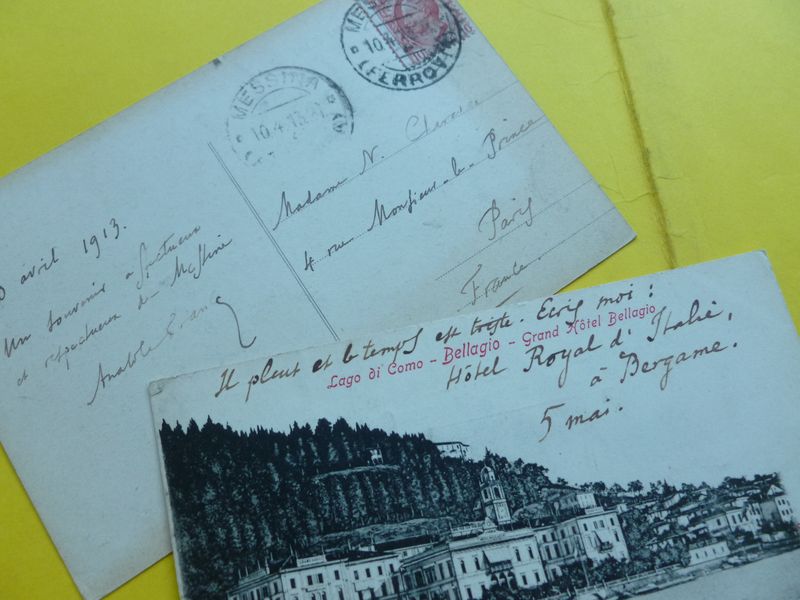 MESSINA
10.4.13
MES
10.
(FERROVIA
Madame N.
4 rue Monsieur-le-Prince
Paris
France.
avril 1913.
Un souvenir
et respectueux de Messine
Anatole
Il pleut et le temps est triste. Ecris moi:
Lago di Como - Bellagio - Grand Hôtel Bellagio
Hôtel Royal d'Italie,
à Bergame.
5 mai.